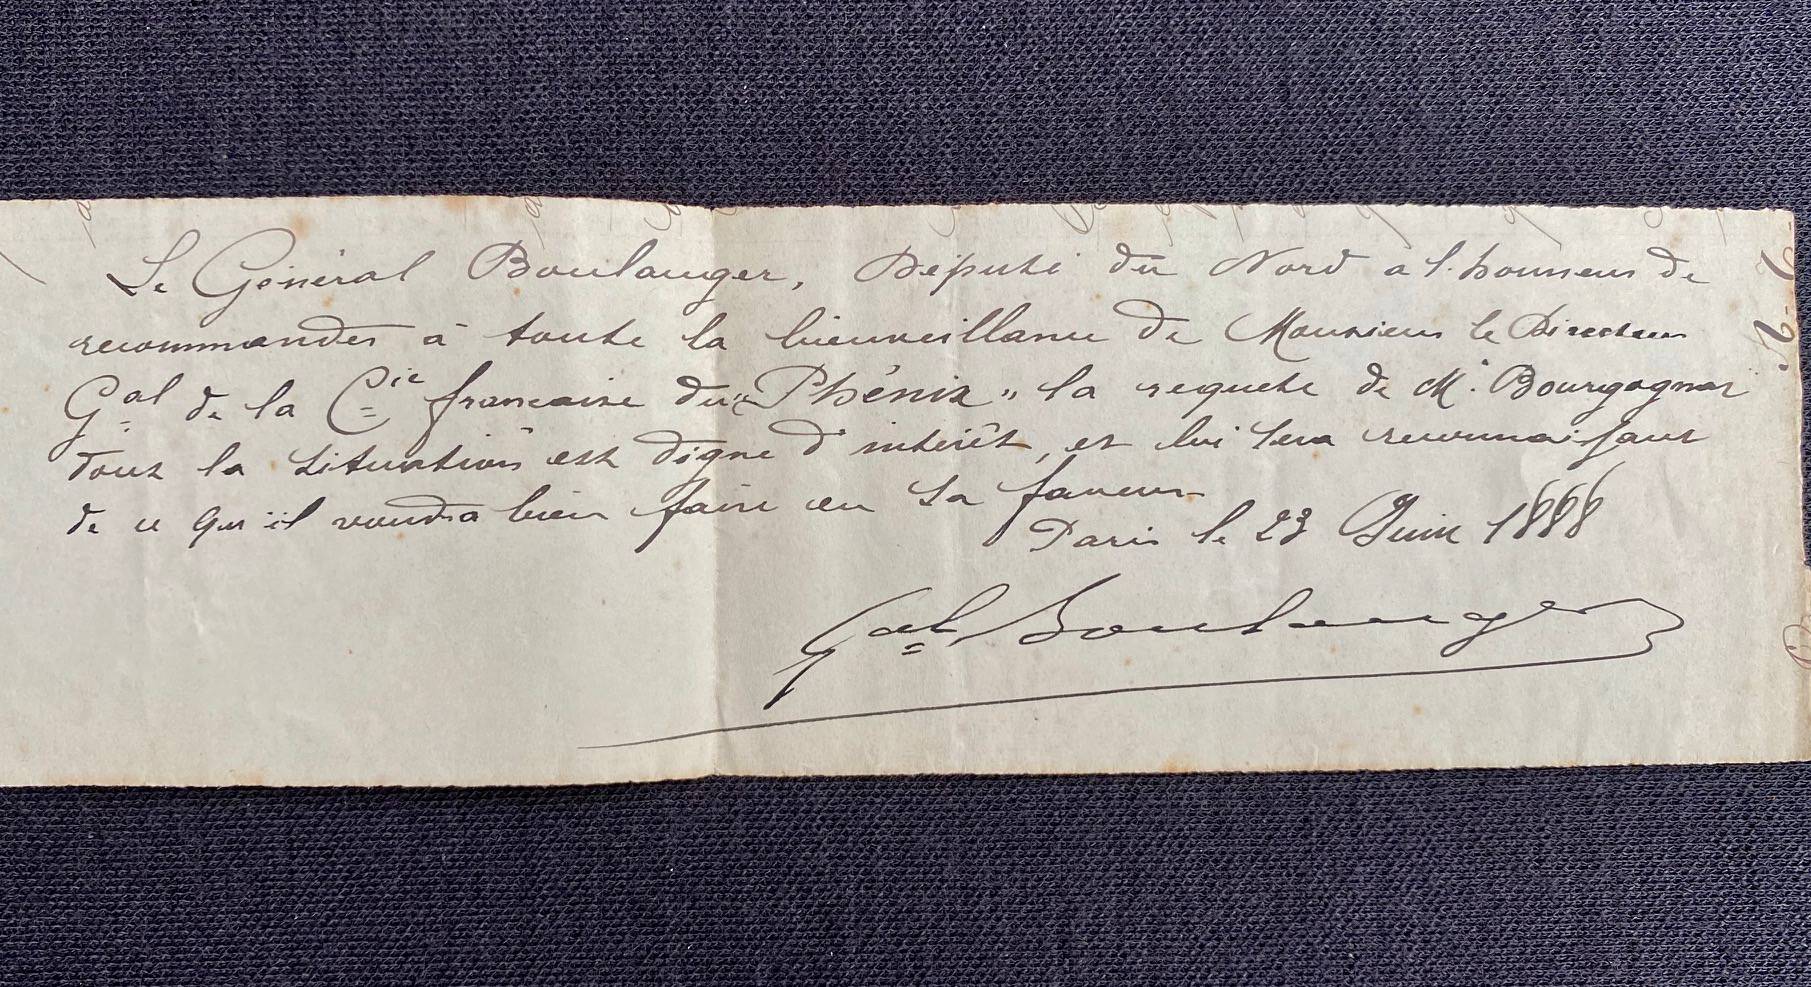 Le Général Boulanger, Député du Nord a l'honneur de
recommander à toute la bienveillance de Monsieur le Directeur
Gal de la Cie française du "Phénix" la requête de Mr Bourgogner
dont la situation est digne d'intérêt, et lui sera reconnaissant
de ce qu'il voudra bien faire en sa faveur
Paris le 23 Juin 1888
Gal Boulanger